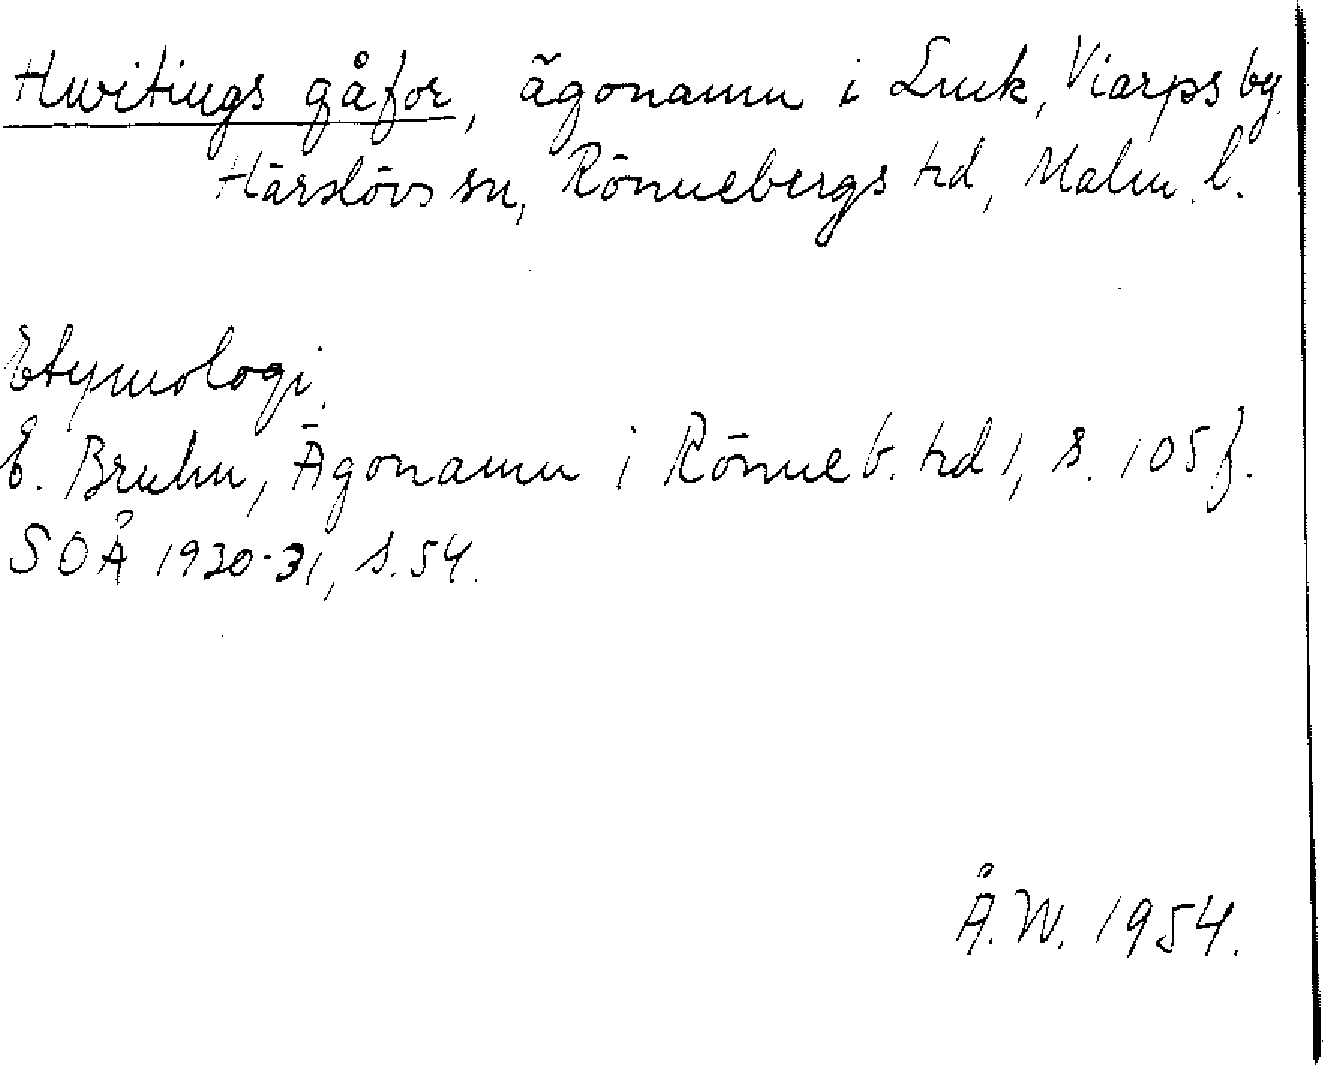 Hwitings gåfor, ägonamn i Luuk, Viarps by
Härslövs sn, Rönnebergs hd, Malm. l.
Etymologi.
E. Bruhn, Ägonamn i Rönneb. hd 1, s. 105 f.
SOÅ 1930-31, s. 54.
Å. W. 1954.